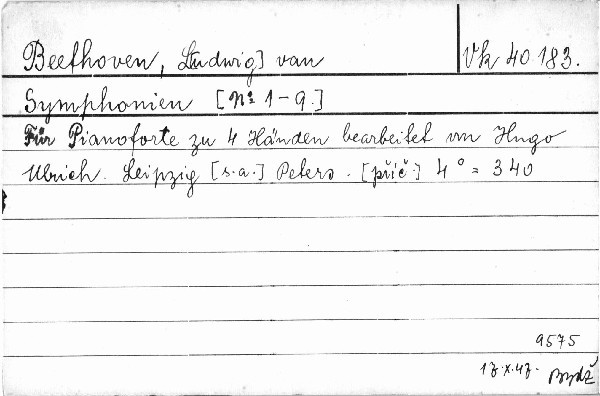 Beethoven, L[udwig] van
Vk 40 183.
Symphonien [No 1-9.]
Für Pianoforte zu 4 Händen bearbeitet von Hugo
Ulrich. Leipzig [s.a.] Peters. [příč.] 4° = 340
9575
17.X.47.